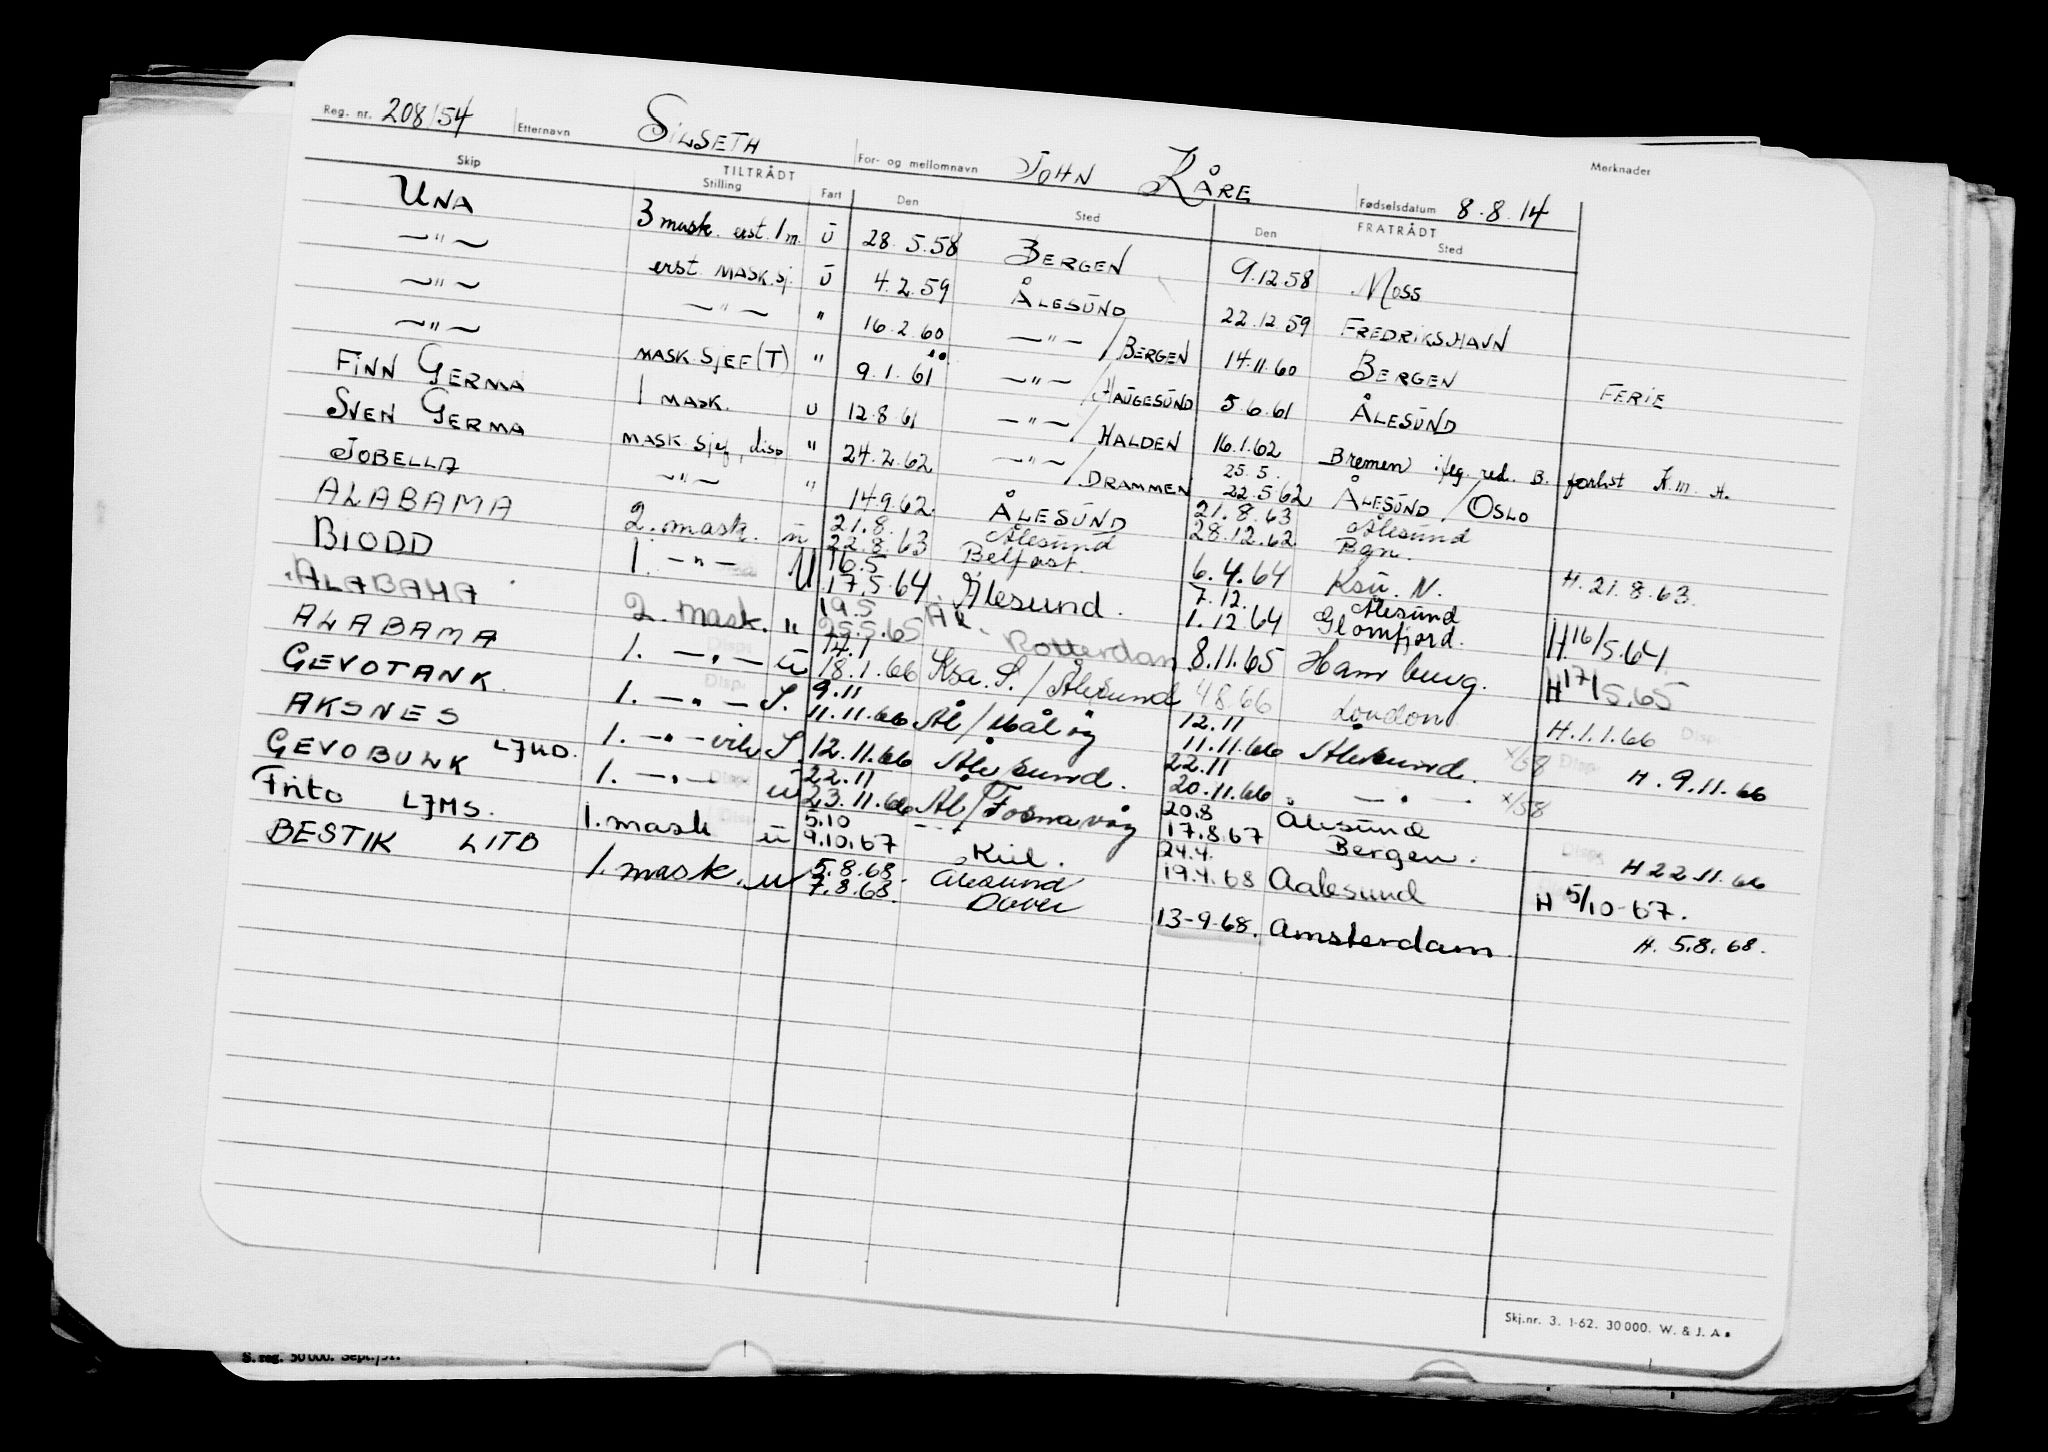 Reg. nr. 208/54 Etternavn SILSETH For- og mellomnavn JOHN KÅRE Fødselsdatum 8.8.14 Merknader
Skip TILTRÅDT Stilling Fart Den Sted FRATRÅDT Den Sted
UNA 3 mask. erst. 1 m. U 28.5.58 BERGEN 9.12.58 MOSS
—"— erst MASK.Sj. U 4.2.59 ÅLESUND 22.12.59 FREDRIKSHAVN
—"— —"— " 16.2.60 —"— / BERGEN 14.11.60 BERGEN FERIE
—"— MASK SJEF (T) " 9.1.61 —"— / HAUGESUND 5.6.61 ÅLESUND
FINN GERMA 1 MASK. U 12.8.61 —"— / HALDEN 16.1.62 Bremen forlist
SVEN GERMA MASK sjef, disp " 24.2.62 —"— / DRAMMEN 25.5. 22.5.62 ÅLESUND / OSLO
JOBELLA —"— " 14.9.62. ÅLESUND 21.8.63 28.12.62. Ålesund Bgn. H. 21.8.63.
ALABAMA 2. mask. u 21.8. 22.8.63 Ålesund Belfast. 6.4.64 Ksu. N. H 16/5.64
BIODD 1. —"— U 16.5 17.5.64 Ålesund. 7.12. 1.12 64 Ålesund Glomfjord. H 17/5.65
ALABAMA 2. mask. " 19.5 25.5.65 Ål. Rotterdam 8.11.65 Hamburg. H.1.1.66
ALABAMA 1. —"— u 14.1 18.1.66 Ksa. S. / Ålesund 4.8.66 London H. 9.11.66
GEVOTANK 1. —"— S. 9.11 11.11.66 Ål / Måløy 12.11 11.11.66 Ålesund. x/58
AKSNES 1. —"— vik S 12.11.66 Ålesund. 22.11 20.11.66 —"— x/58 H 22.11.66
GEVOBULK LJUD. 1. —"— u 22.11 23.11.66 Ål / Fosnavåg 20.8 17.8.67 Ålesund Bergen. H 5/10-67.
Frito LJMS. 1. mask u 5.10 9.10.67 —"— Kiel. 24.4. 19.4.68 Aalesund H. 5.8.68.
BESTIK LITB 1. mask. u 5.8.68. 7.8.68. Ålesund Dover 13-9-68. Amsterdam
Skj.nr. 3. 1-62. 30000. W. & J. A
S. reg. 50 000. Sept./51.